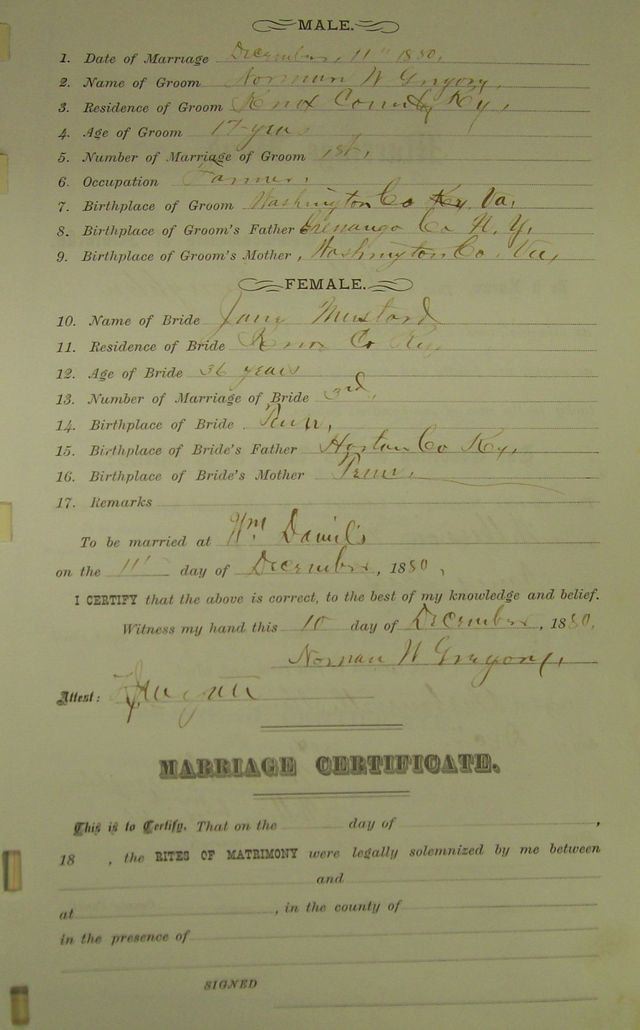 MALE.
1. Date of Marriage December, 11" 1880,
2. Name of Groom Norman W Gregory,
3. Residence of Groom Knox County Ky,
4. Age of Groom 17 years
5. Number of Marriage of Groom 1st,
6. Occupation Farmer,
7. Birthplace of Groom Washington Co Ky. Va,
8. Birthplace of Groom's Father Chenango Co N. Y,
9. Birthplace of Groom's Mother, Washington Co. Va,
FEMALE.
10. Name of Bride Jany Mustard
11. Residence of Bride Knox Co Ky
12. Age of Bride 36 years
13. Number of Marriage of Bride 3rd,
14. Birthplace of Bride Tenn,
15. Birthplace of Bride's Father Co Ky,
16. Birthplace of Bride's Mother Tenn,
17. Remarks
To be married at Wm Daniels
on the 11" day of December, 1880,
I CERTIFY that the above is correct, to the best of my knowledge and belief.
Witness my hand this 10 day of December, 1880,
Norman W Gregory,
Attest:
MARRIAGE CERTIFICATE.
This is to Certify, That on the day of ,
18 , the RITES OF MATRIMONY were legally solemnized by me between
and
at , in the county of
in the presence of
SIGNED